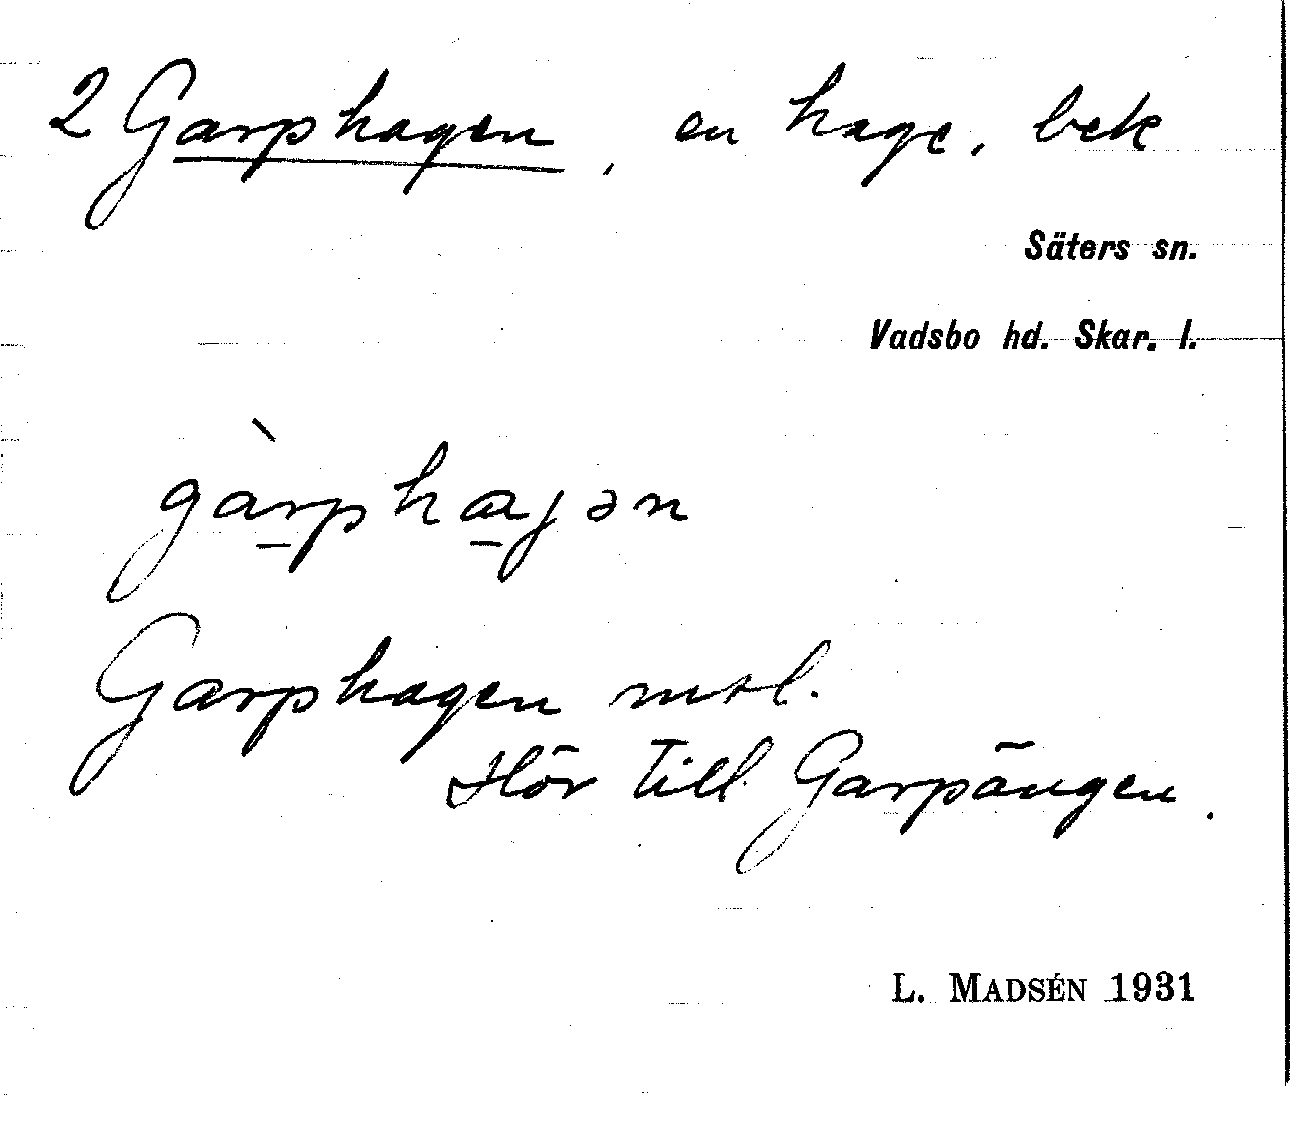 2 Garphagen, en hage, bek
Säters sn.
Vadsbo hd. Skar. l.
gàrphajən
Garphagen mtl.
Hör till Garpängen.
L. MADSÉN 1931